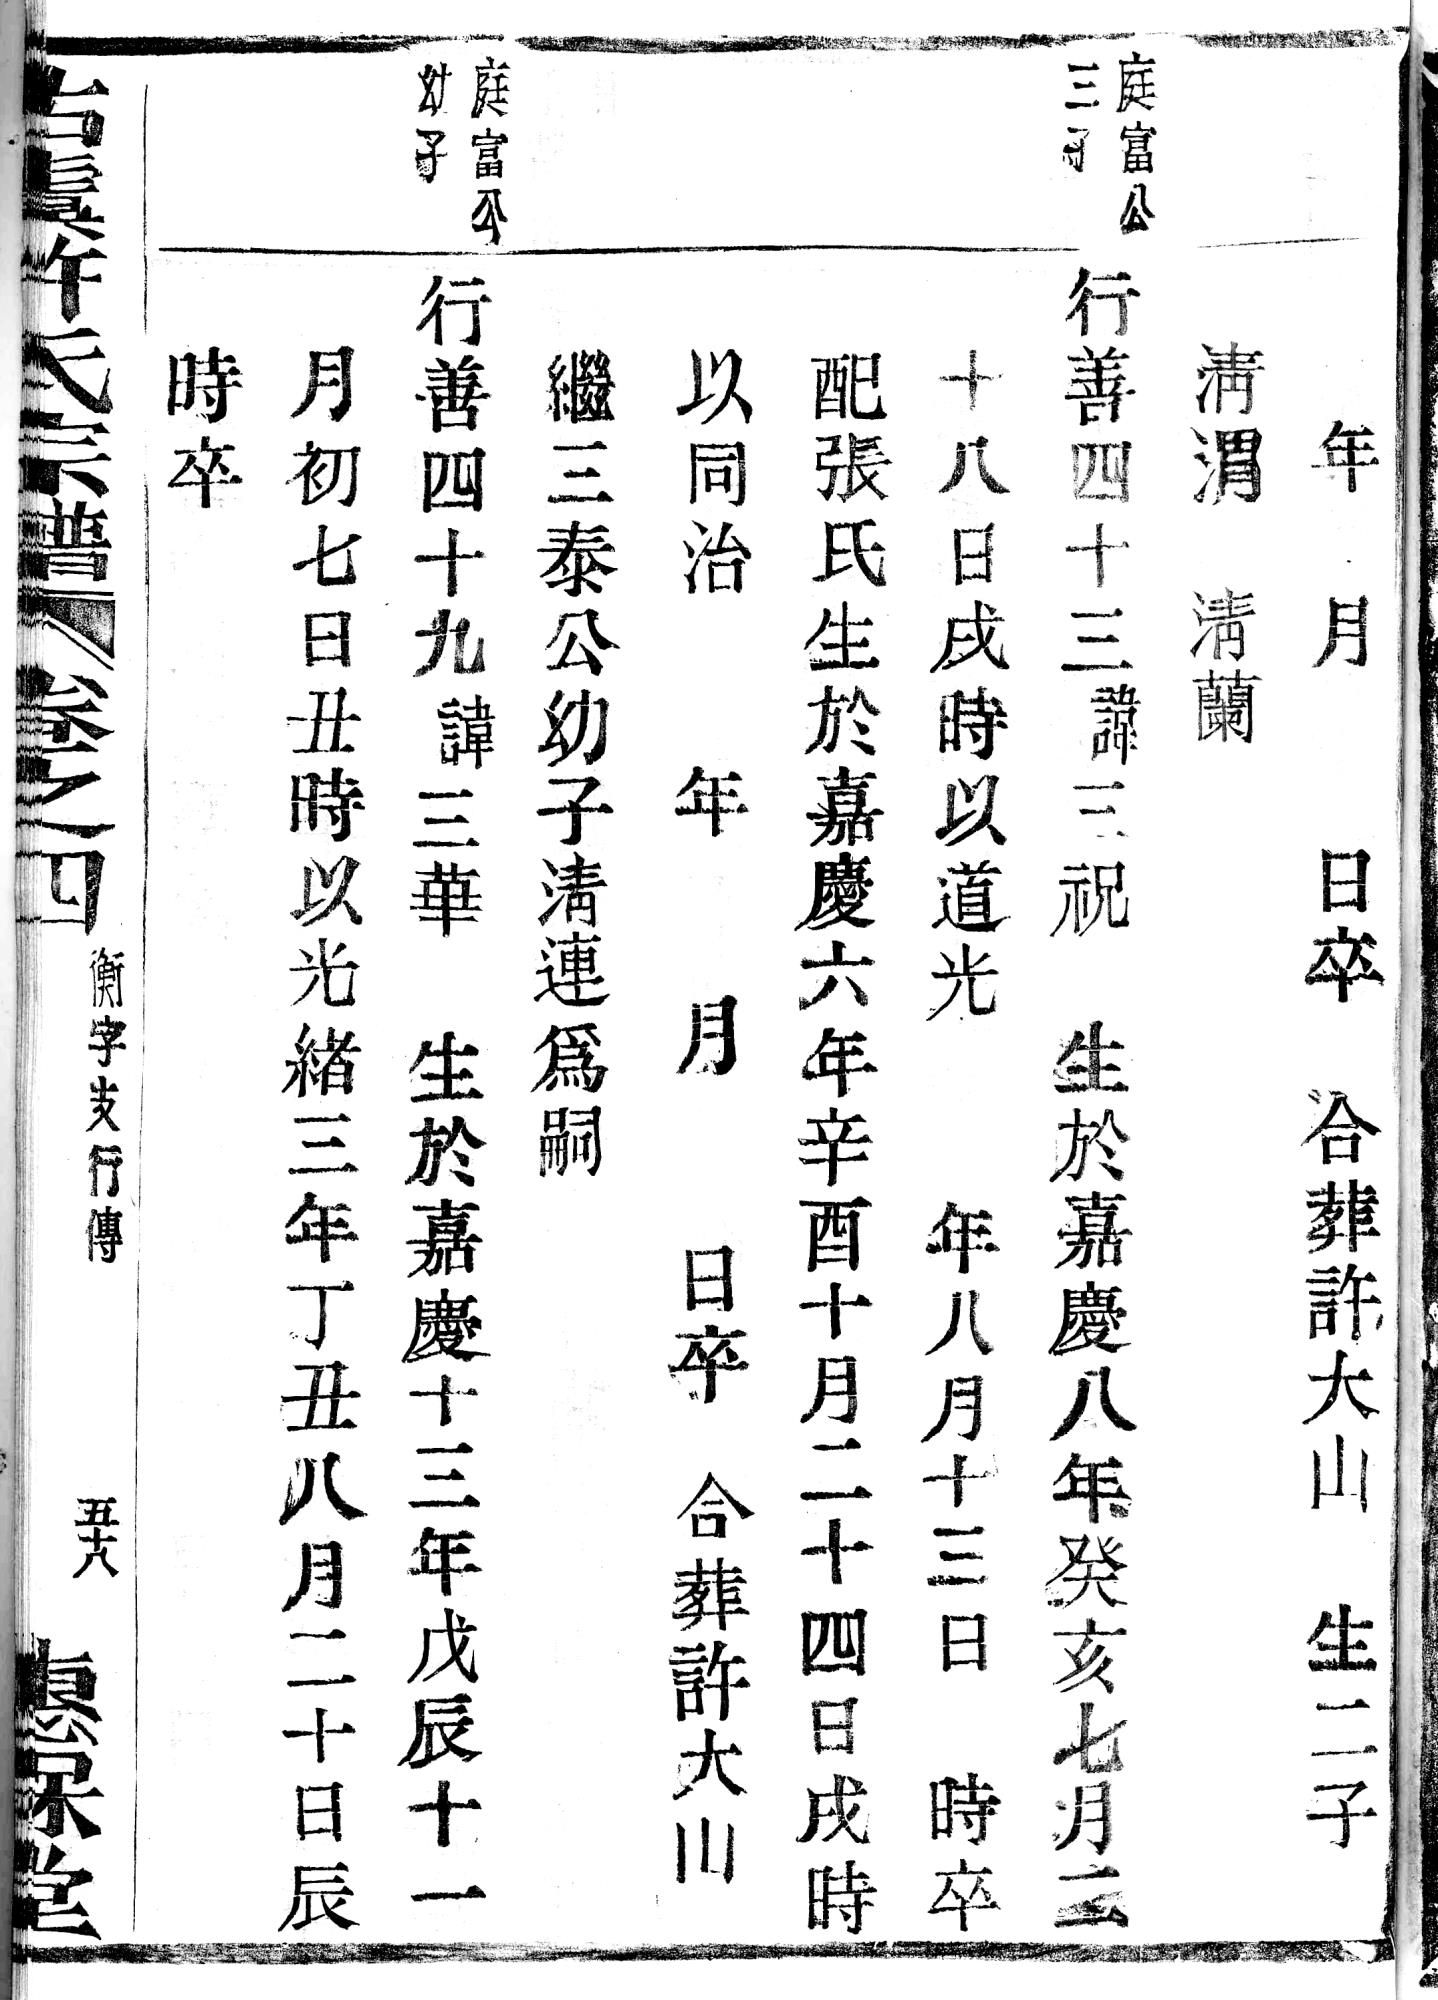 年 月 日卒 合葬許大山 生二子
淸渭 淸蘭
庭富公
三子
行善四十三諱三祝 生於嘉慶八年癸亥七月二
十八日戌時以道光 年八月十三日 時卒
配張氏生於嘉慶六年辛酉十月二十四日戌時
以同治 年 月 日卒 合葬許大山
繼三泰公幼子淸連爲嗣
庭富公
幼子
行善四十九諱三華 生於嘉慶十三年戊辰十一
月初七日丑時以光緒三年丁丑八月二十日辰
時卒
古虞許氏宗譜 卷之四 衡字支行傳 五十八 惠保堂